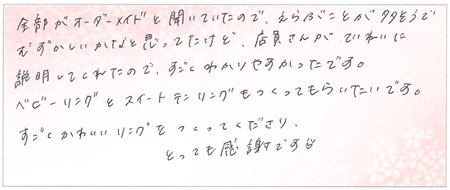 全部がオーダーメイドと聞いていたので、えらぶことが多そうで
むずかしいかなと思ってたけど、店員さんがていねいに
説明してくれたので、すごくわかりやすかったです。
ベビーリングとスイートテンリングもつくってもらいたいです。
すごくかわいいリングをつくってくださり、
とっても感謝です